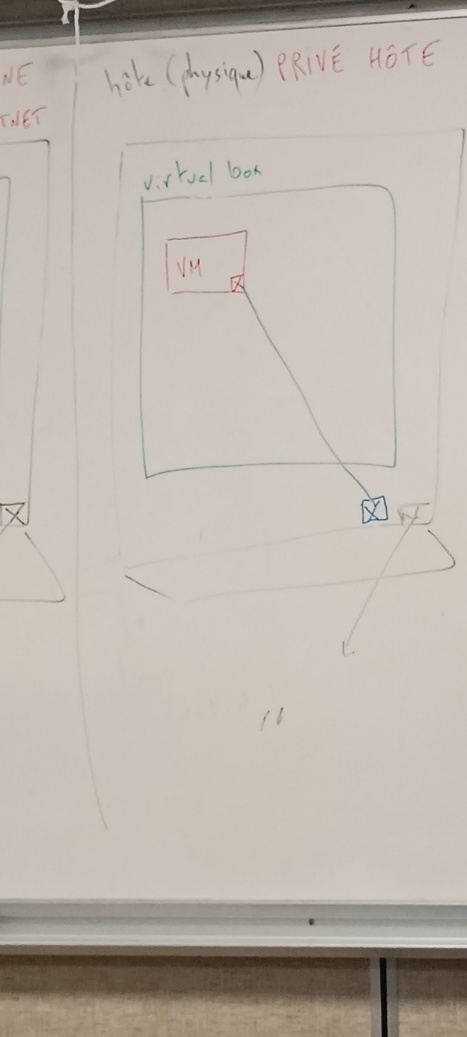 NE
TNET
hôte (physique) PRIVÉ HÔTE
virtual box
VM
"